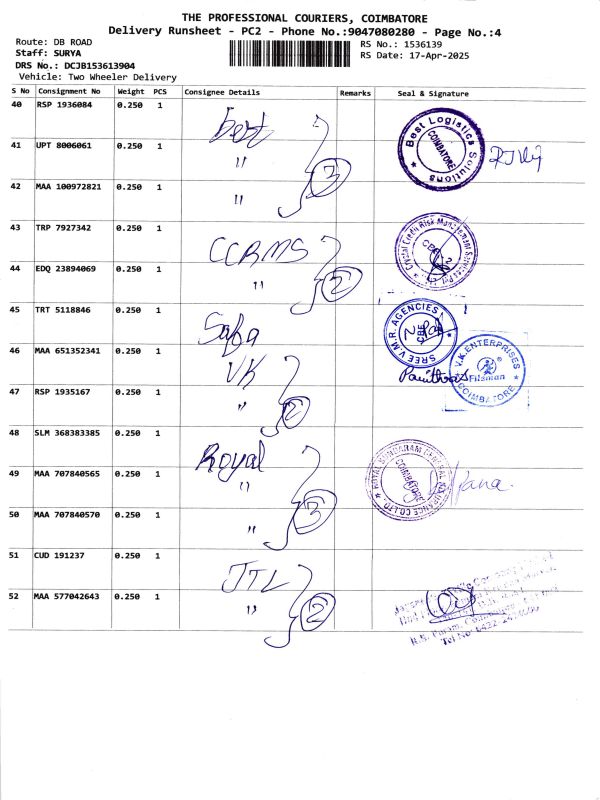 THE PROFESSIONAL COURIERS, COIMBATORE
Delivery Runsheet - PC2 - Phone No.:9047080280 - Page No.:4
Route: DB ROAD
Staff: SURYA
DRS No.: DCJB153613904
Vehicle: Two Wheeler Delivery
RS No.: 1536139
RS Date: 17-Apr-2025
S No Consignment No Weight PCS Consignee Details Remarks Seal & Signature
40 RSP 1936084 0.250 1 Best
41 UPT 8006061 0.250 1 "
42 MAA 100972821 0.250 1 "
3
Best Logistics Solutions
COIMBATORE
43 TRP 7927342 0.250 1 CCRMS
44 EDQ 23894069 0.250 1 "
2
Crystal Credit Risk Management Services
45 TRT 5118846 0.250 1
SREE V.M.R. AGENCIES
CBE
46 MAA 651352341 0.250 1 VK
47 RSP 1935167 0.250 1 "
2
V.K.ENTERPRISES
Fitsman
COIMBATORE
48 SLM 368383385 0.250 1 Royal
49 MAA 707840565 0.250 1 "
50 MAA 707840570 0.250 1 "
3
ROYAL SUNDARAM GENERAL INSURANCE CO.LTD.
COIMBATORE
51 CUD 191237 0.250 1 JTL
52 MAA 577042643 0.250 1 "
2